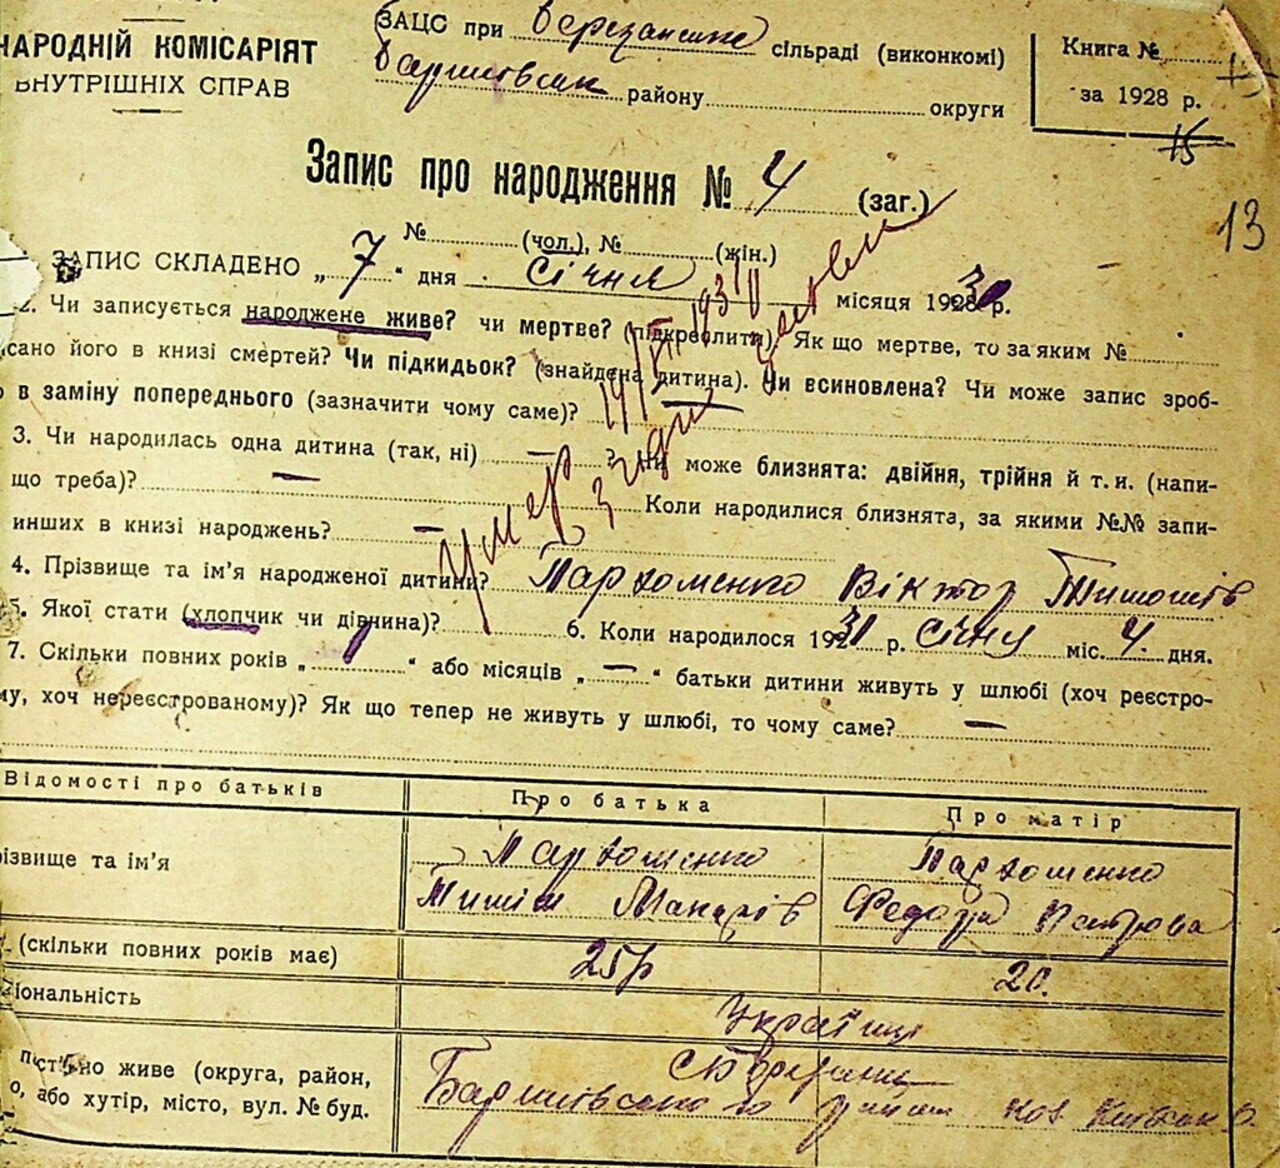 НАРОДНІЙ КОМІСАРІЯТ
ВНУТРІШНІХ СПРАВ
ЗАЦС при сільраді (виконкомі)
району округи
Книга №
за 1928 р.
15
13
Запис про народження № 4 (заг.)
№ (чол.), № (жін.)
ЗАПИС СКЛАДЕНО „ 7 “ дня січня місяця 1930 р.
2. Чи записується народжене живе? чи мертве? (підкреслити). Як що мертве, то за яким №
сано його в книзі смертей? Чи підкидьок? (знайдена дитина). Чи всиновлена? Чи може запис зроб-
в заміну попереднього (зазначити чому саме)?
3. Чи народилась одна дитина (так, ні) — ? Чи може близнята: двійня, трійня й т. и. (напи-
що треба)? — Коли народилися близнята, за якими №№ запи-
инших в книзі народжень? —
Умер
4. Прізвище та ім’я народженої дитини? Пархоменко Віктор Тимошів
5. Якої стати (хлопчик чи дівчина)? 6. Коли народилося 1931 р. січня міс. 4. дня.
7. Скільки повних років „ 1 “ або місяців „ — “ батьки дитини живуть у шлюбі (хоч реєстро-
му, хоч нереєстрованому)? Як що тепер не живуть у шлюбі, то чому саме? —
Відомості про батьків Про батька Про матір
ізвище та ім’я Пархоменко Пархоменко
Тиміш Макарів Федора Петрова
(скільки повних років має) 25р 20.
іональність Українці
постійно живе (округа, район, с. Березань
о, або хутір, місто, вул. № буд. Баришівського району Київськ о.